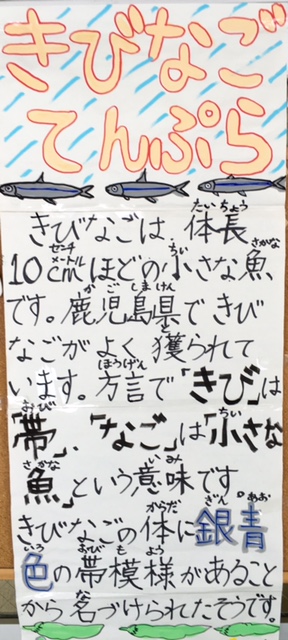 きびなご
てんぷら
きびなごは、体長
10cmほどの小さな魚
です。鹿児島県できび
なごがよく獲られて
います。方言で「きび」は
「帯」、「なご」は「小さな
魚」という意味です。
きびなごの体に銀青
色の帯模様があること
から名づけられたそうです。